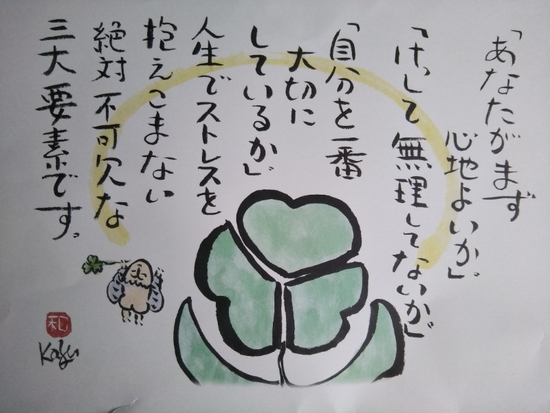 「あなたがまず
心地よいか。」
「けっして無理してないか」
「自分を一番
大切に
しているか」
人生でストレスを
抱えこまない
絶対不可欠な
三大要素です。
札